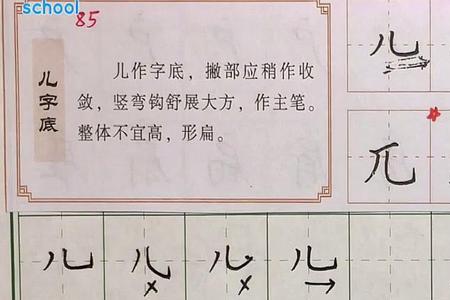 school
85
儿字底
儿作字底，撇部应稍作收
敛，竖弯钩舒展大方，作主笔。
整体不宜高，形扁。
儿
兀
儿 儿 儿 儿